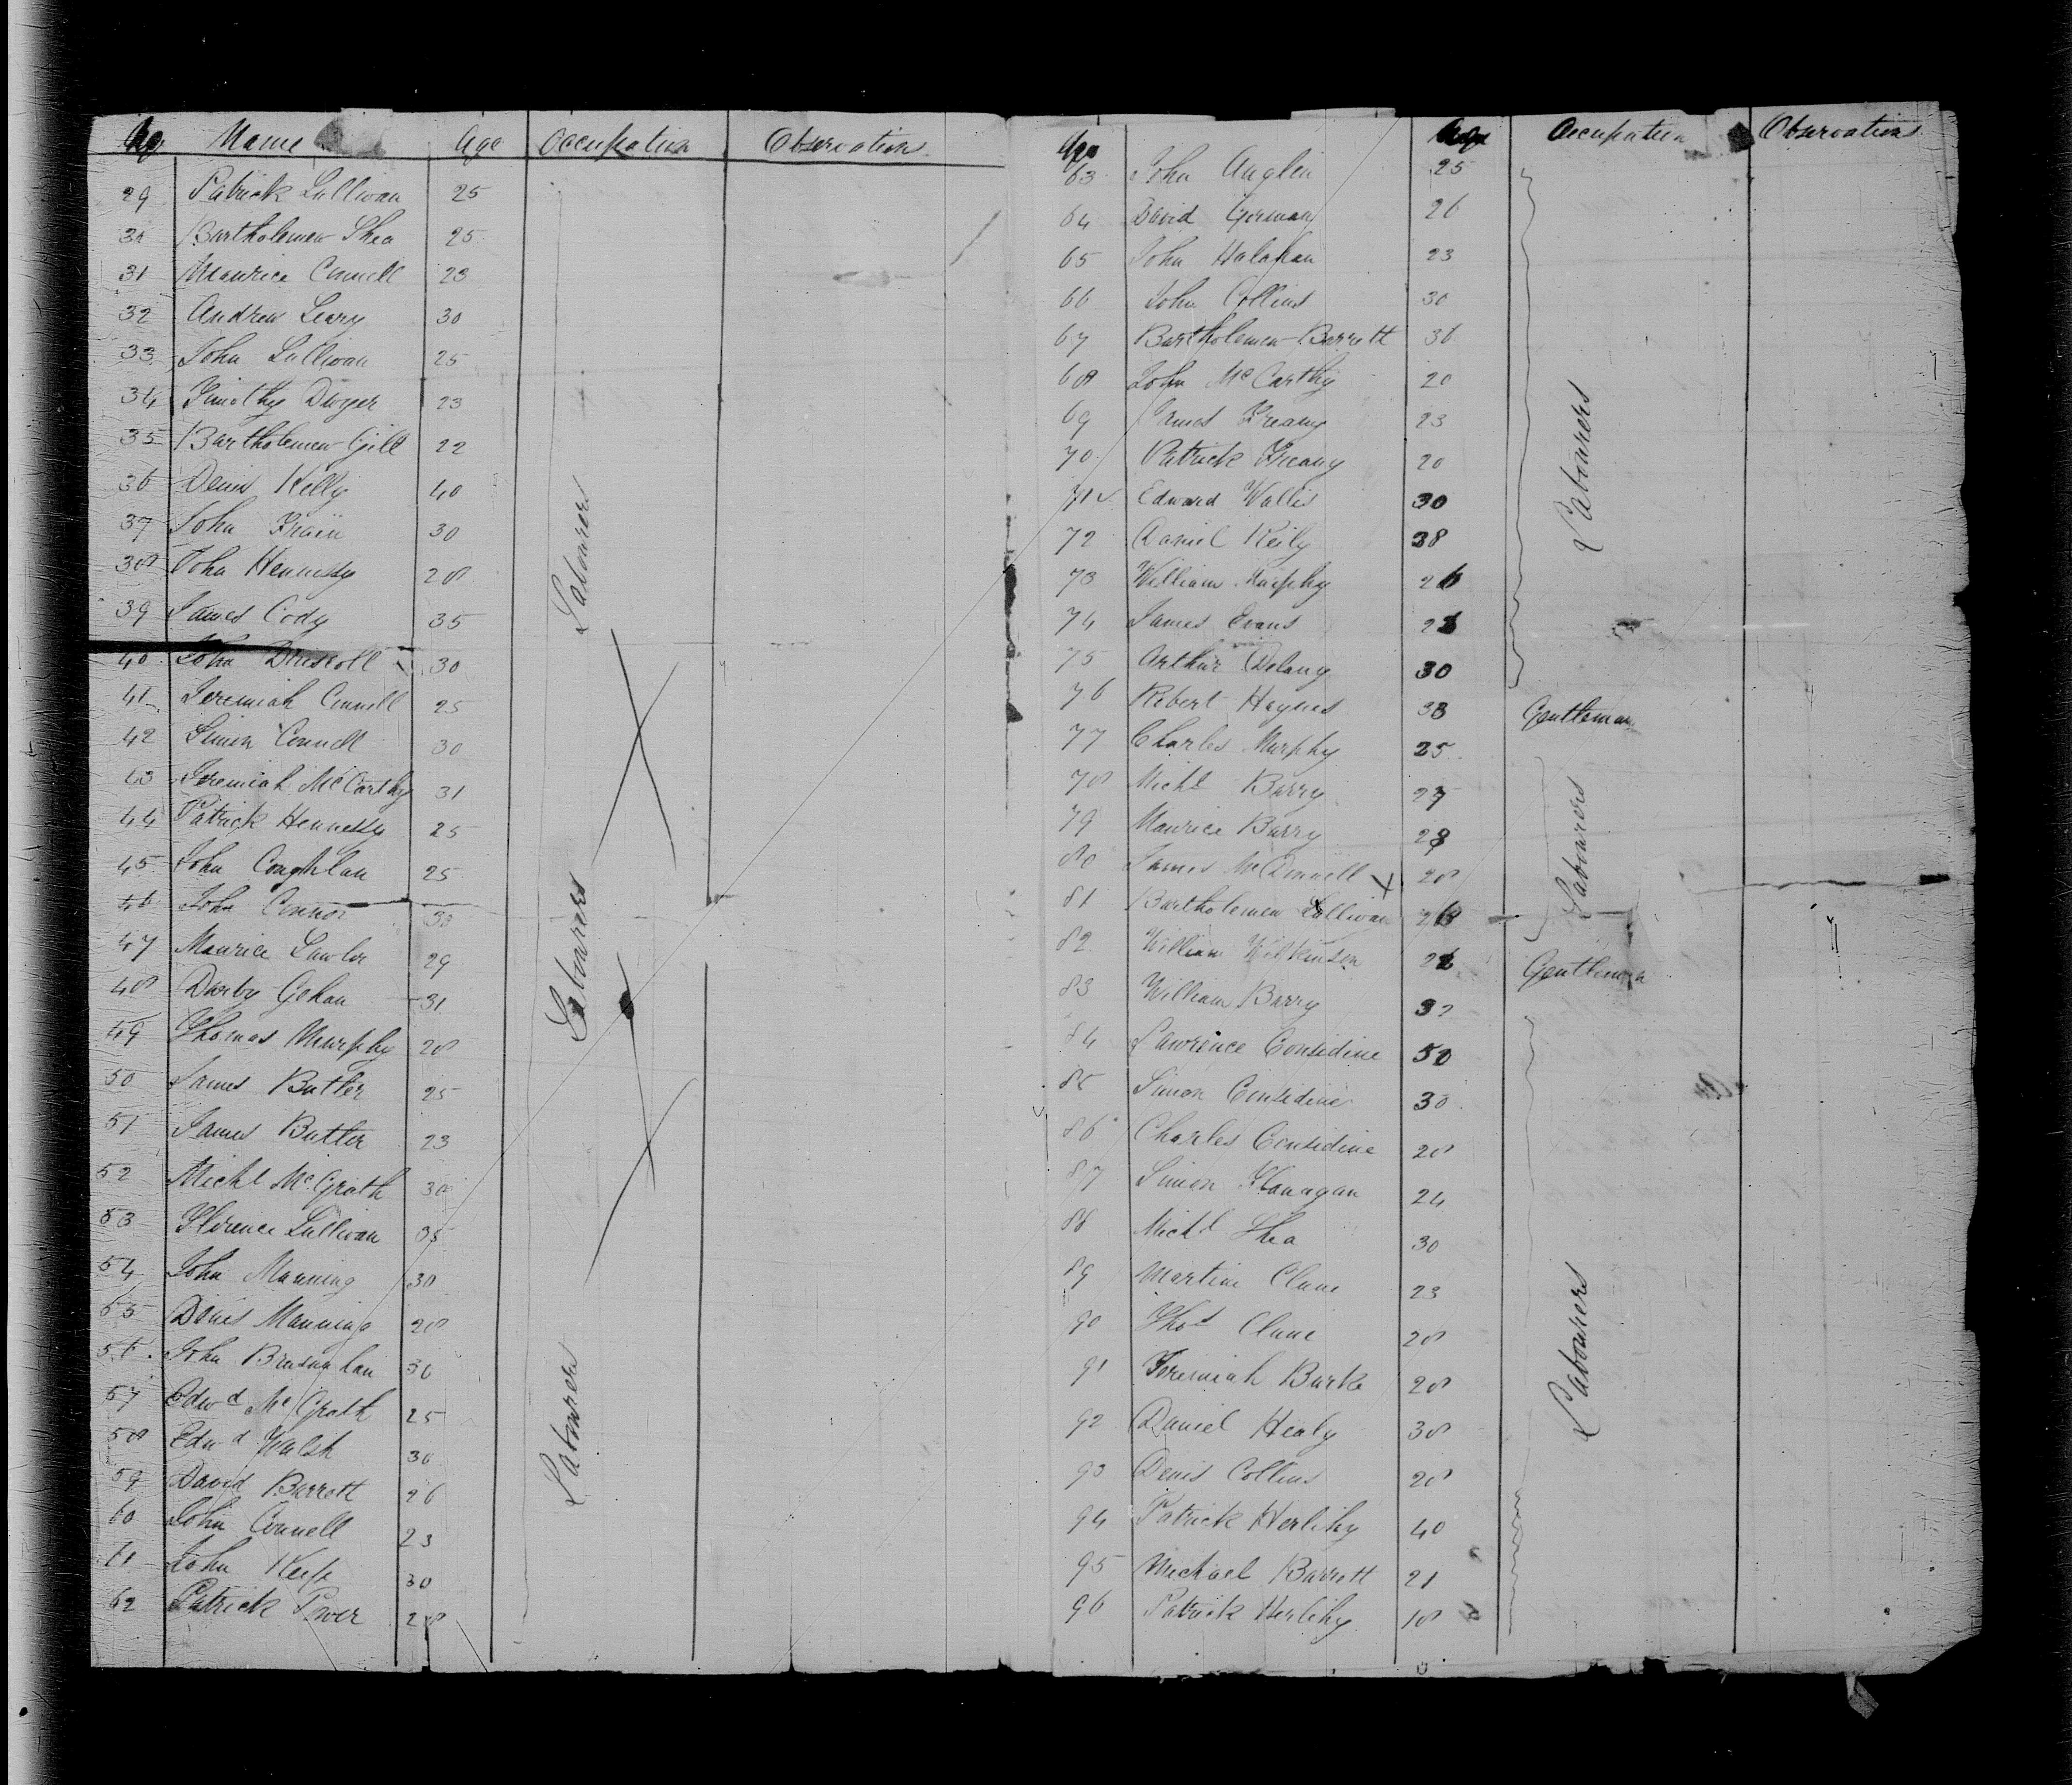 No. Name Age Occupation Observation
29 Patrick Sullivan 25
30 Bartholemew Shea 25
31 Maurice Connell 23
32 Andrew Leary 30
33 John Sullivan 25
34 Timothy Dwyer 23
35 Bartholemew Gill 22
36 Denis Kelly 40
37 John 30
38 John Hennessy 28
39 James Cody 35
Labourers
40 John Driscoll 30
41 Jeremiah Connell 25
42 Simon Connell 30
43 Jeremiah McCarthy 31
44 Patrick Hennessy 25
45 John Coughlan 25
46 John Connor
47 Maurice Lawlor 29
48 Darby Gehan 31
Labourers
49 Thomas Murphy 28
50 James Butler 25
51 James Butler 23
52 Michl McGrath
53 Florence Sullivan 35
54 John Manning 30
55 Denis Manning 28
56 John Brusnahan 30
57 Edwd McGrath 25
58 Edwd Walsh 30
59 David Barrett 26
60 John Connell 23
61 John Keefe 30
62 Patrick Power 28
Labourers
No Age Occupation Observations
63 John Anglin 25
64 David Gorman 26
65 John Halahan 23
66 John Collins 30
67 Bartholemew Barrett 36
68 John McCarthy 20
69 James Treany 23
70 Patrick Treany 20
71 Edward Wallis 30
72 Daniel Reily 38
73 William Murphy 26
74 James Evans
75 Arthur Delany 30
Labourers
76 Robert Haynes 38 Gentleman
77 Charles Murphy 25
78 Michl Barry 27
79 Maurice Barry 28
80 James McDonnell 28
81 Bartholemew Sullivan
Labourers
82 William Wilkinson Gentleman
83 William Barry
84 Lawrence Considine 50
85 Simon Considine 30
86 Charles Considine 28
87 Simon Flanagan 24
88 Michl Shea 30
89 Martin Clune 23
90 Thos Clune 28
91 Jeremiah Burke 28
92 Daniel Healy 38
93 Denis Collins 28
94 Patrick Herlihy 40
95 Michael Barrett 21
96 Patrick Herlihy 18
Labourers